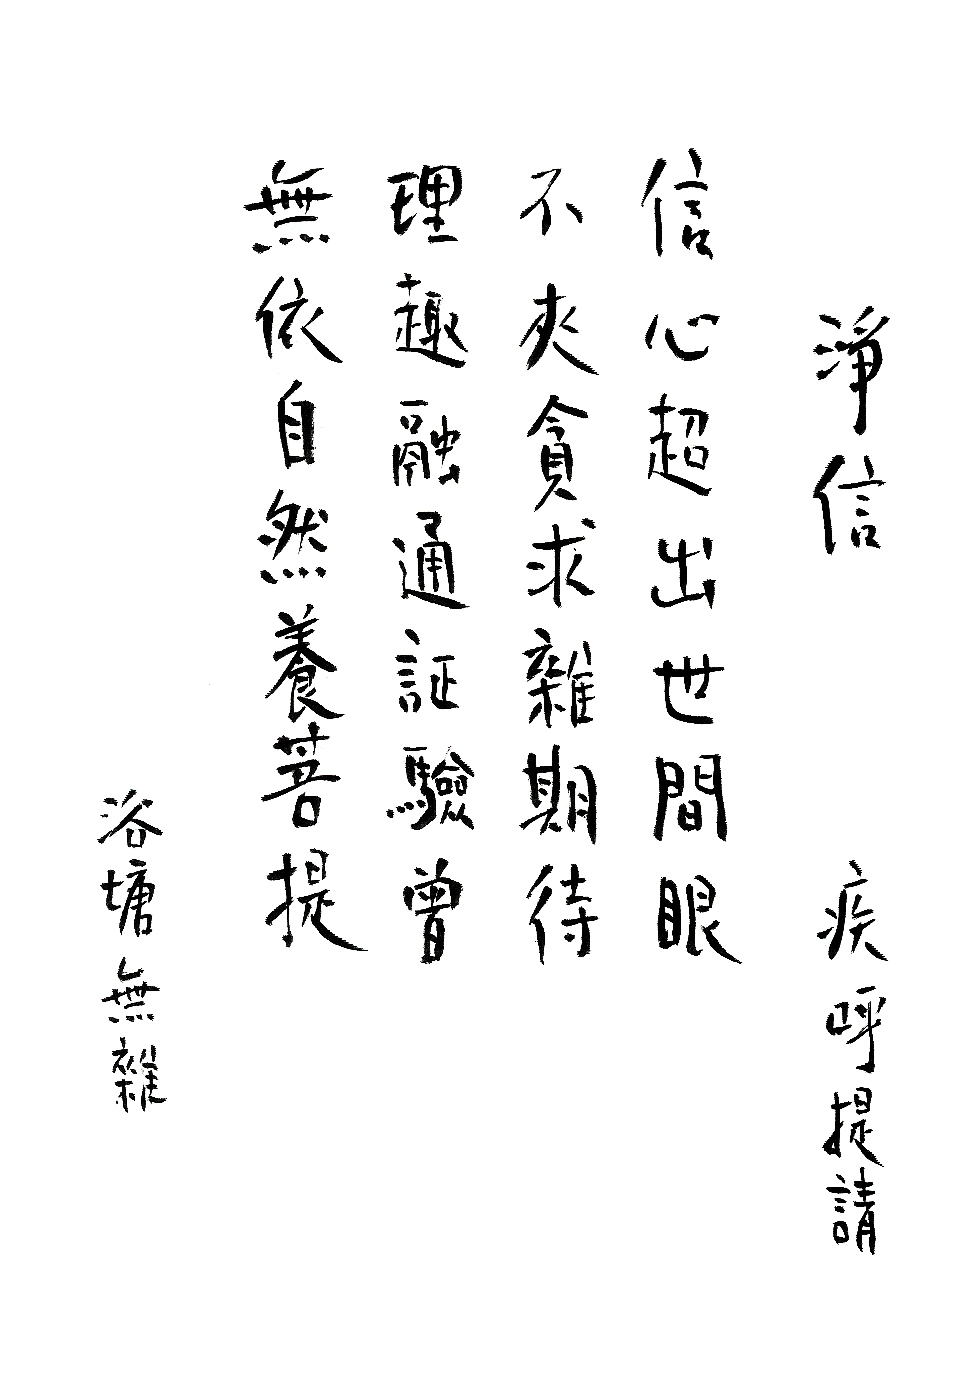 淨信 疾呼提請
信心超出世間眼
不夾貪求雜期待
理趣融通証驗曾
無依自然養菩提
浴塘無雜